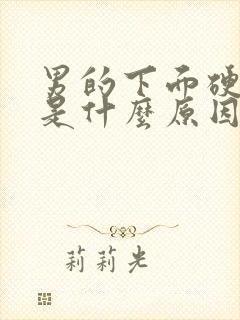 男的下面硬
是什麼原因
莉莉光